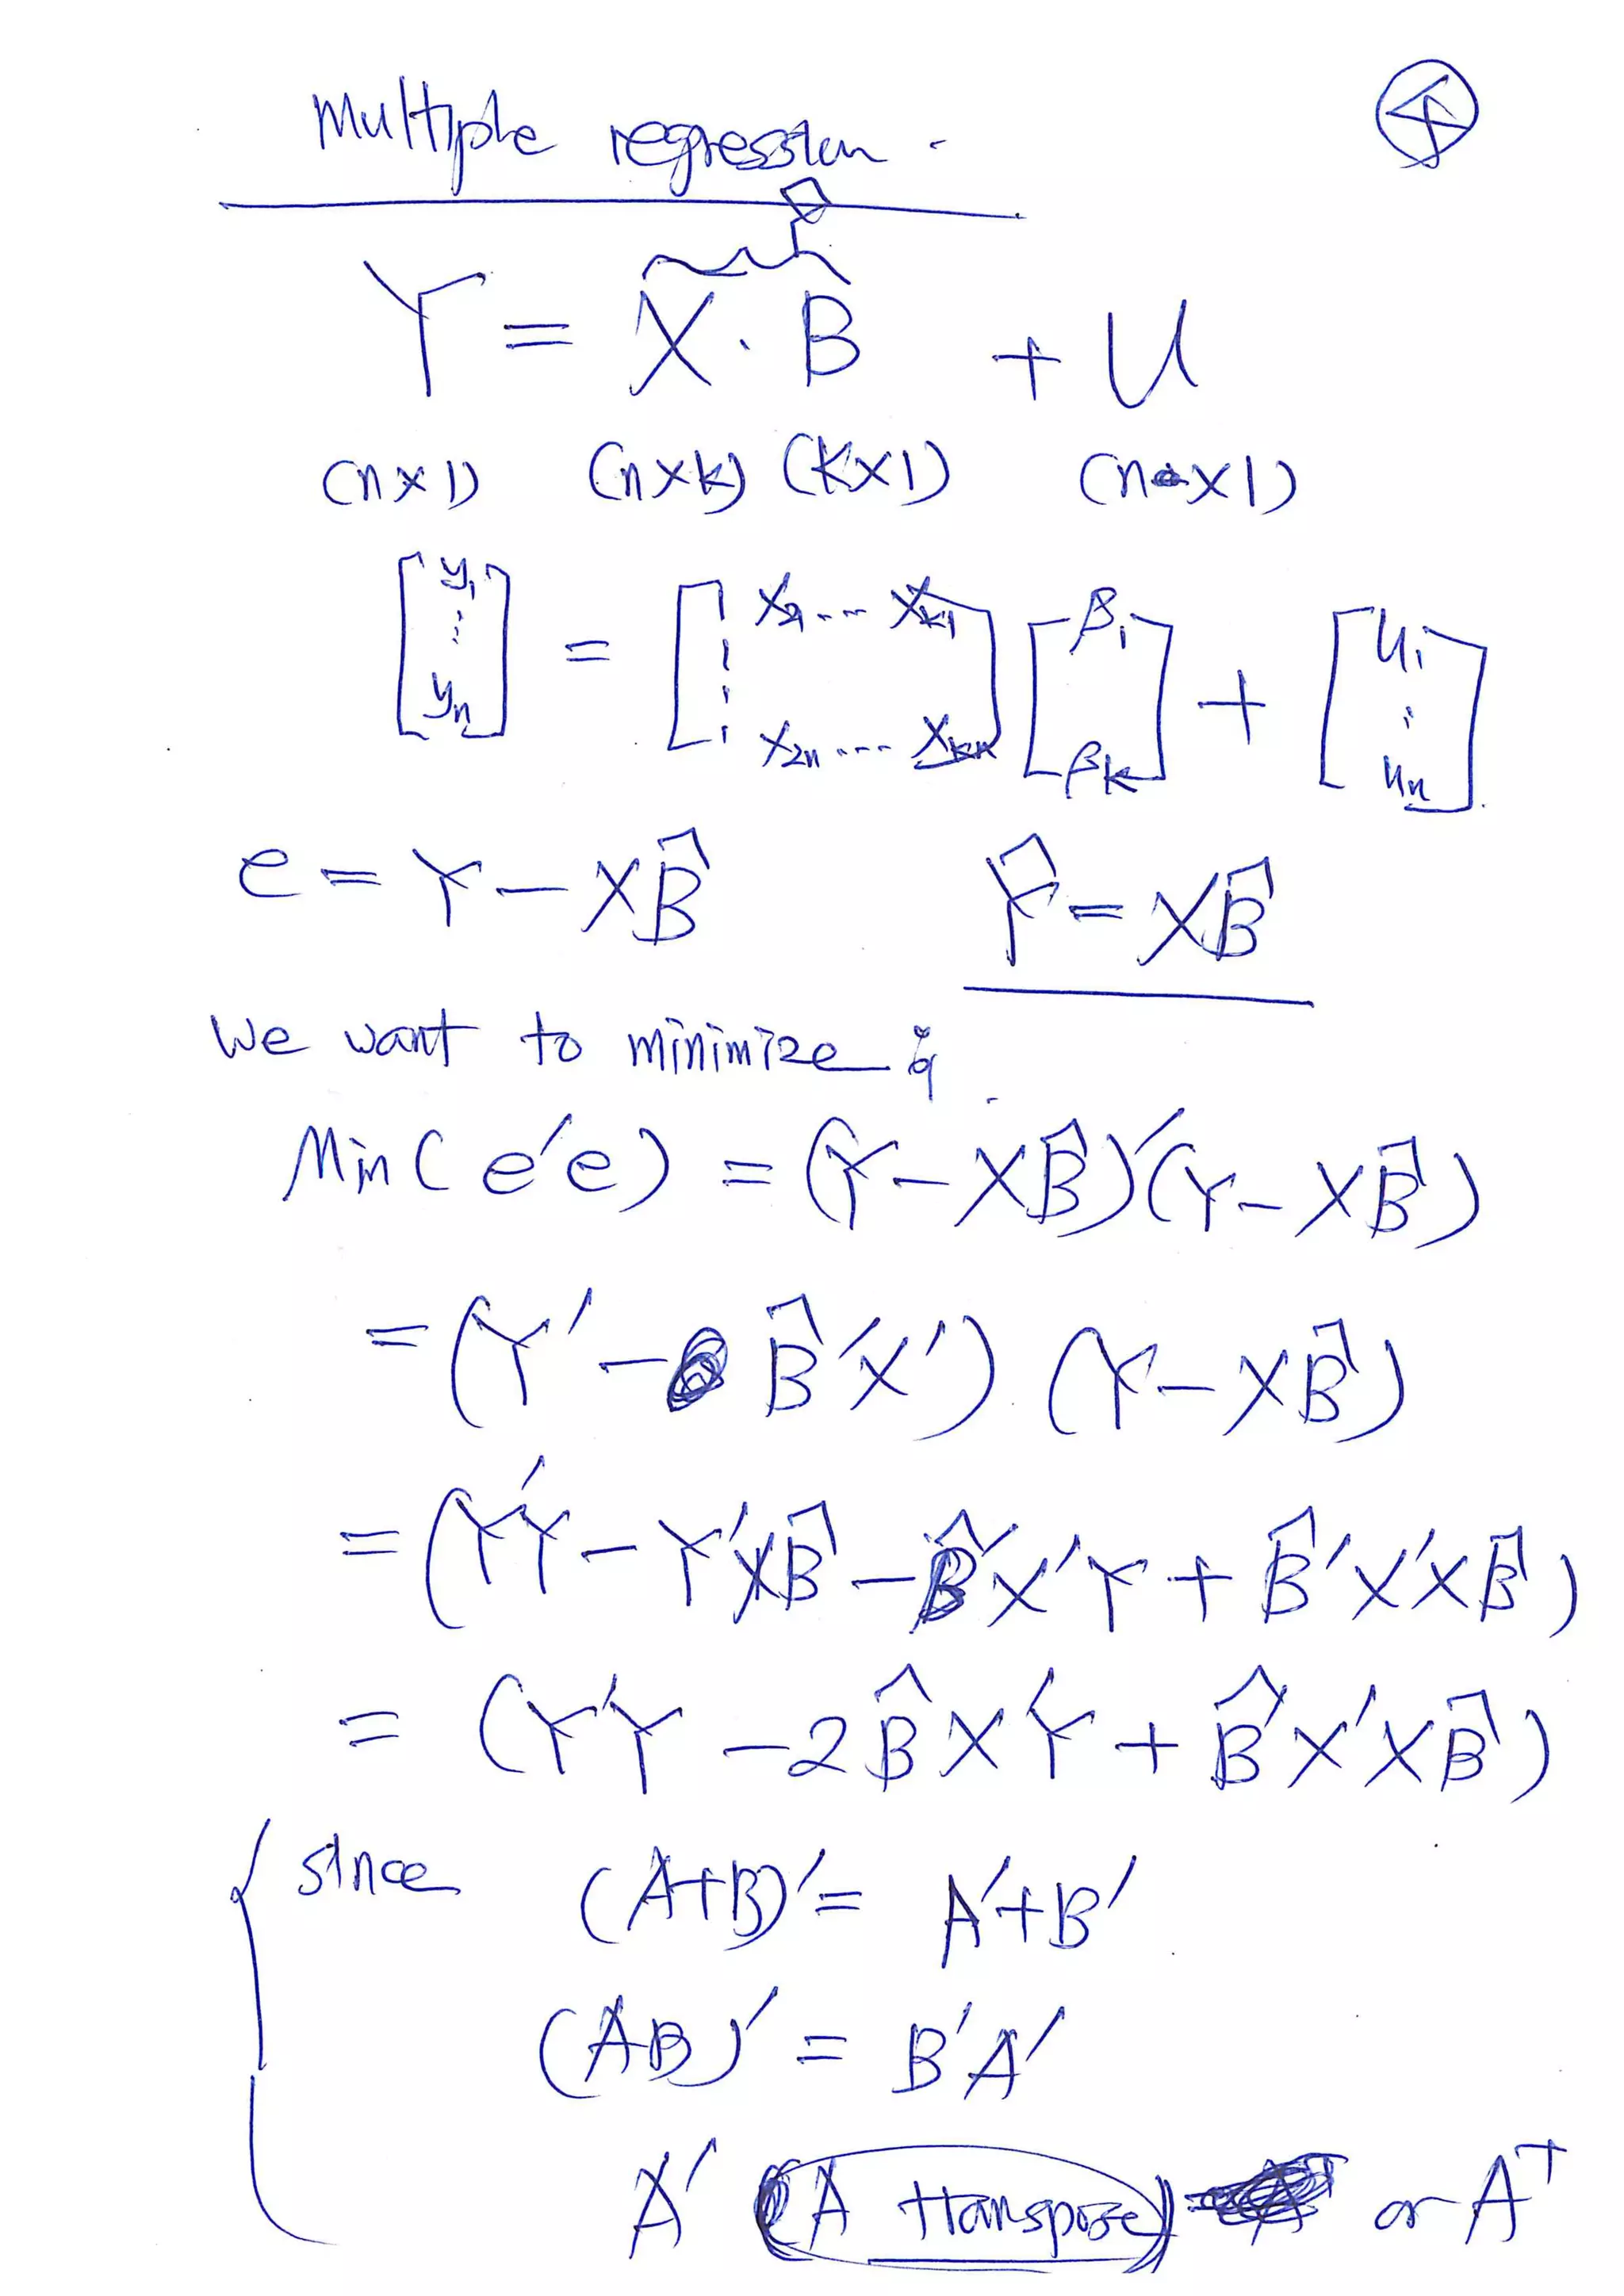 Multiple regression.
④
Y = X · B + U
(n×1) (n×k) (k×1) (n×1)
[y₁ ⋮ yₙ] = [1 ⋮ 1 X₂₁ ... Xₖ₁ X₂ₙ .... Xₖₙ] [β₁ βₖ] + [u₁ ⋮ uₙ]
e = Y - XB̂ Ŷ = XB̂
We want to minimize ;
Min ( e′e ) = (Y - XB̂)′(Y - XB̂)
= (Y′ - B̂′X′) (Y - XB̂)
= (Y′Y - Y′XB̂ - B̂′X′Y + B̂′X′XB̂)
= (Y′Y - 2B̂X′Y + B̂′X′XB̂)
since (A+B)′ = A′+B′
(AB)′ = B′A′
A′ (A transpose) or Aᵀ